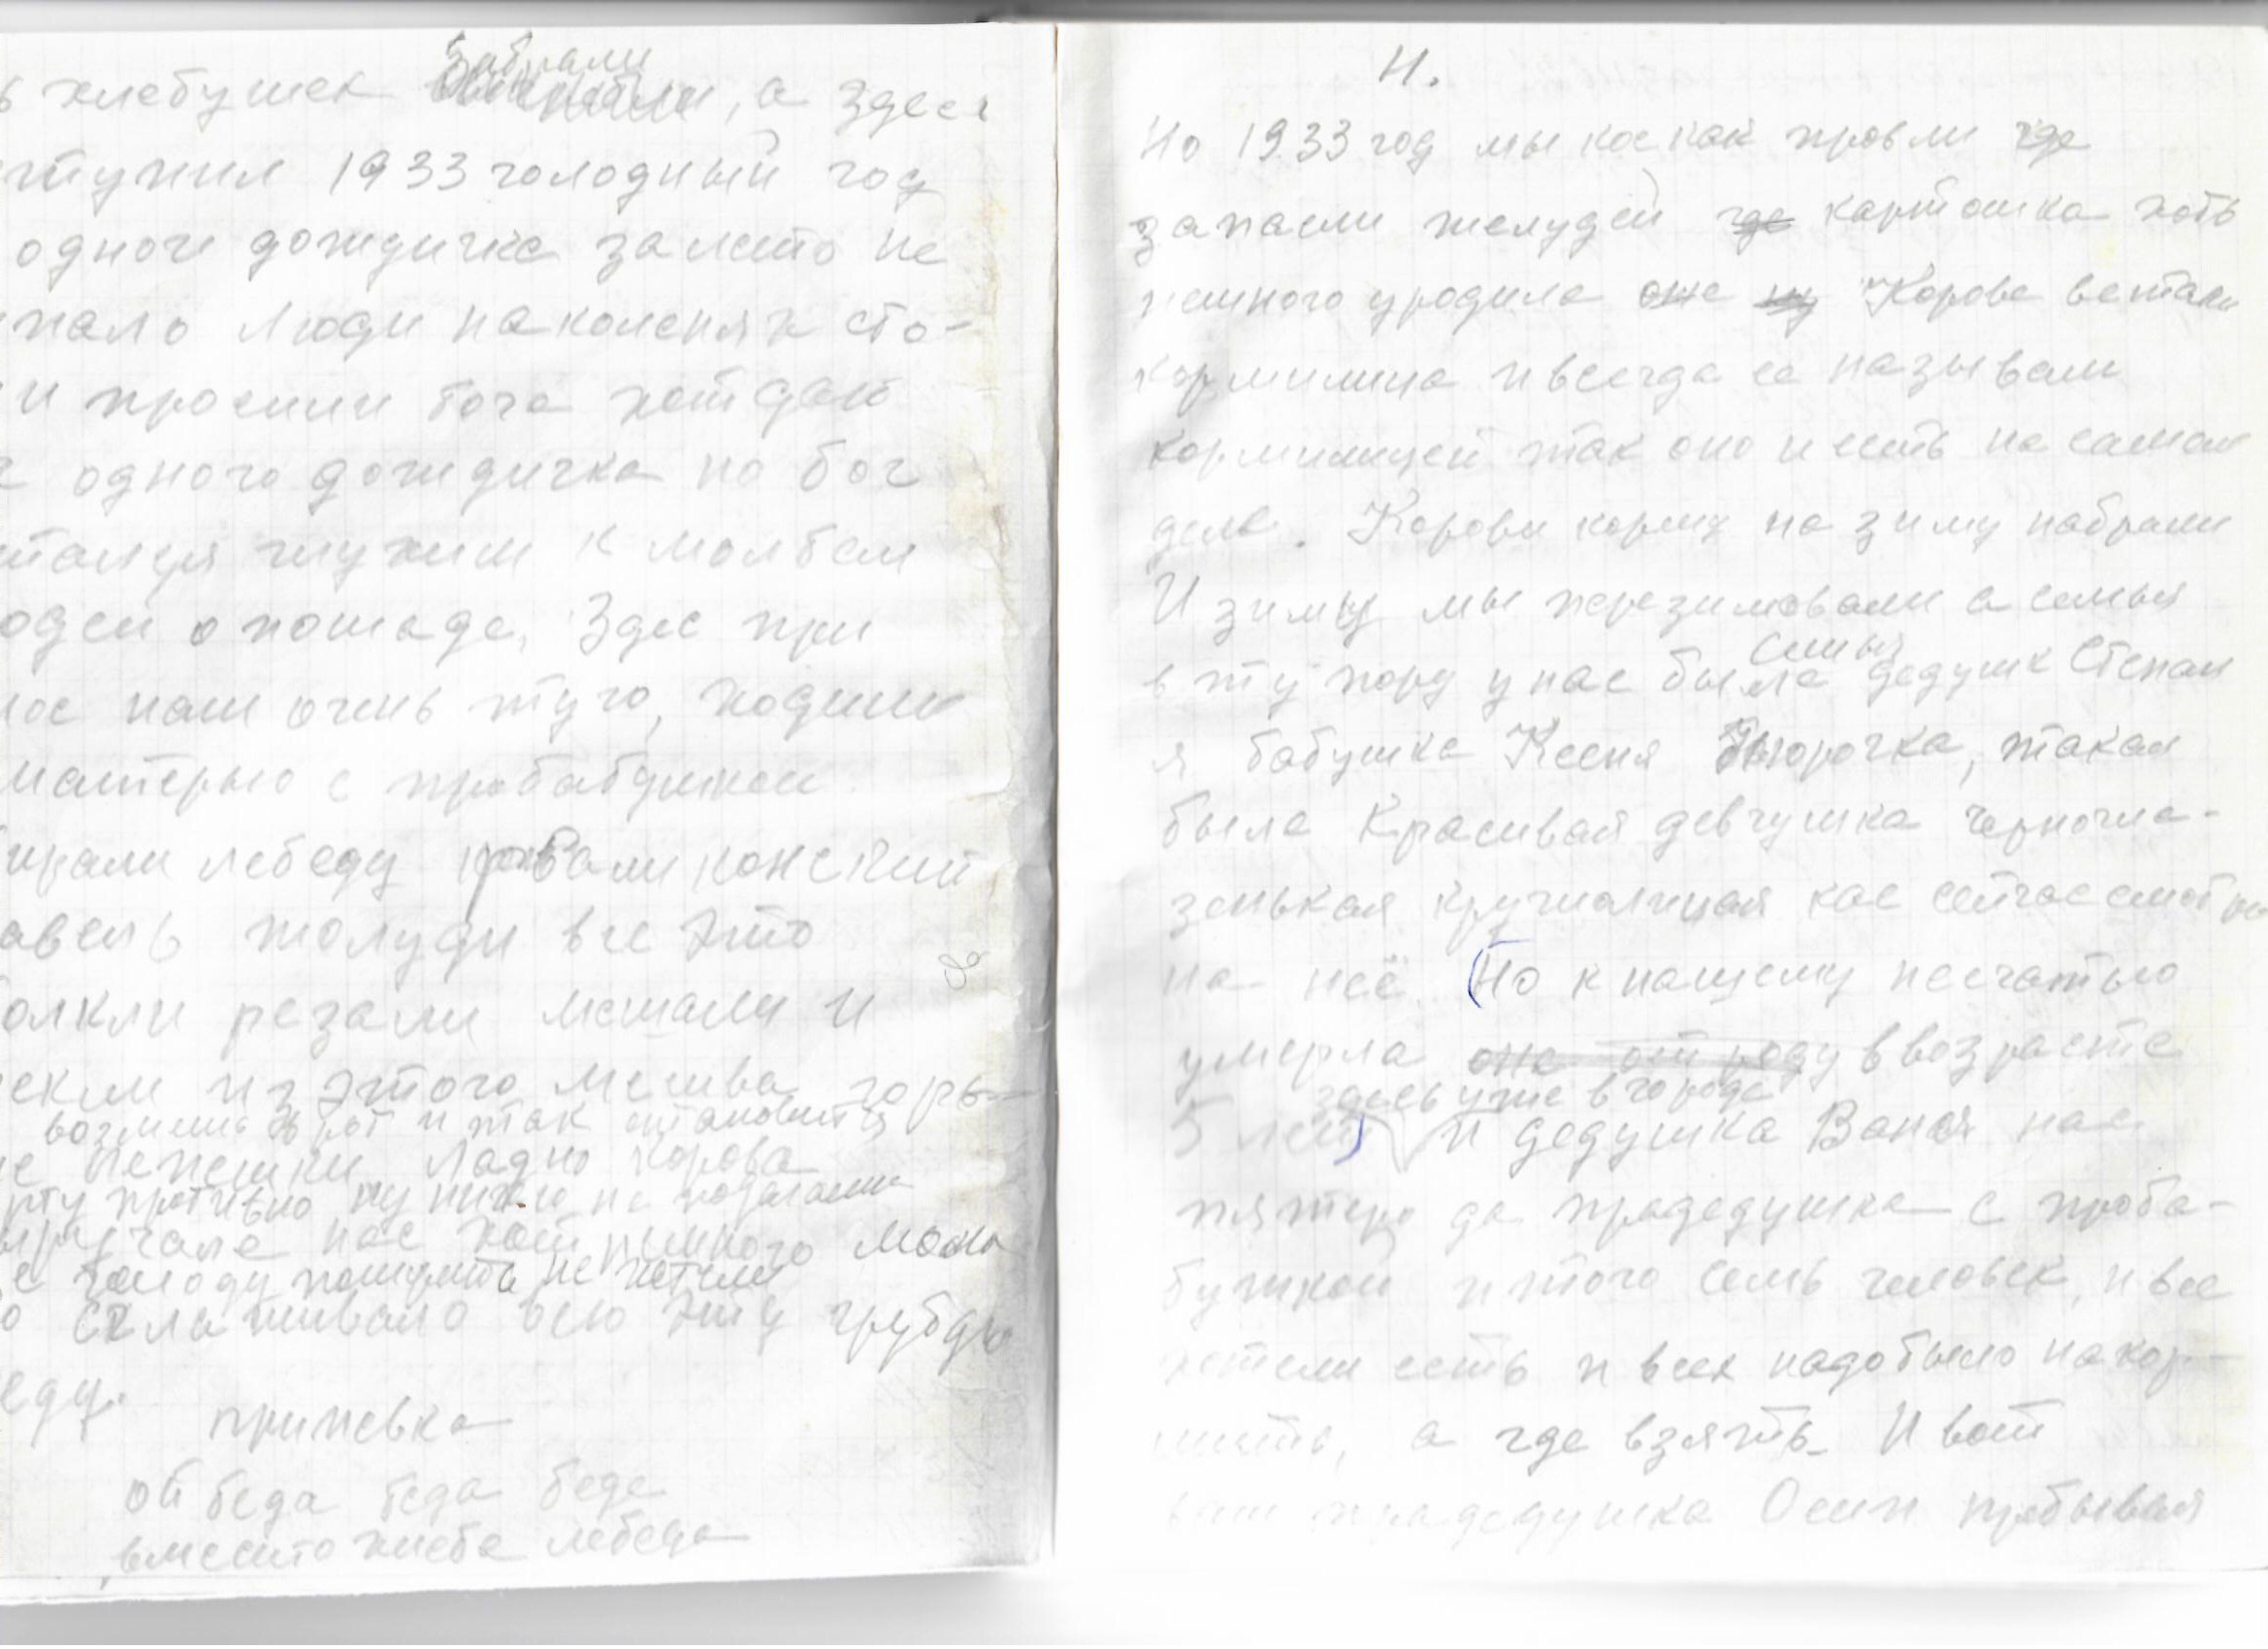 забрали
ь хлебушек, а здеся
ступил 1933 голодный год
одного дождичка за лето не
пало Люди на коленях сто-
и просили бога хот дай
одного дождичка но бог
стался глухим к молбам
юдей о пощаде, Здес при
лос нам очень туго, ходили
матерью с пробабушкой
бирали лебеду рвали конский
авель жолуди все это
олкли резали мешали и
пекли из этого месива горь-
возмеш в рот и так становится
ие лепешки ладно корова
рту противно ну ничего не
выручала нас хот немного моло
с голоду помирать не хотели
о сглаживало всю эту грубую
еду.
припевка
ой беда беда беда
вместо хлеба лебеда
Н.
Но 1933 год мы кос как провли где
запасли желудей где картошка хоть
немного уродила она ну Корова
кормилица и всегда ее называли
кормилицей так оно и есть на самом
деле. Корови корму на зиму набрали
И зиму мы перезимовали а семья
семья
в ту пору у нас была дедушк Степан
я бабушка Ксеня такая
была Красивая девчушка черногла-
зенькая круглолицая кас сейчас смотрю
на неё. (Но к нашему несчатью
умерла она от роду в возрасте
здесь уже в городе
5 лет) и дедушка Ваня нас
пятеро да прадедушка с проба-
бушкой итого семь человек, и все
хотели есть и всех надо было накор-
мить, а где взять. И вот
ваш прадедушка Осип пребывая